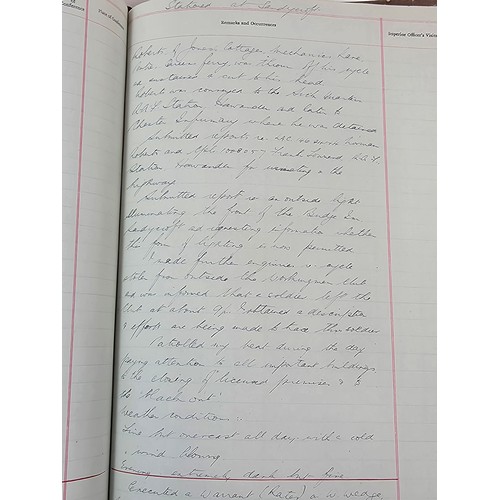 Stationed at Sandycroft
Conference
Place of Conference
Remarks and Occurrences
Superior Officer's Visits
Roberts of Jersey Cottages Mechanics Lane
Queens ferry, was thrown off his cycle
sustained a cut to his head
Roberts was conveyed to the Sick Quarters
R.A.F Station, Hawarden ad later to
Chester Infirmary where he was detained
Submitted reports re
Roberts and Frank R.A.F
Station Hawarden for on the
highway
Submitted report re an outside light
illuminating the front of the Bridge Inn
Sandycroft ad requesting information whether
this form of lighting is now permitted
I made further enquiries re cycle
stolen from outside the Workingmans Club
ad was informed that a soldier left the
Club at about 9pm I obtained a description
& efforts are being made to trace this soldier
Patrolled my beat during the day
paying attention to all important buildings
& the closing of licensed premises & to
the 'black out'
Weather conditions :-
Fine but overcast all day, with a cold
wind blowing
Evening extremely dark but fine
Executed a Warrant (Rates) a W. Wedge